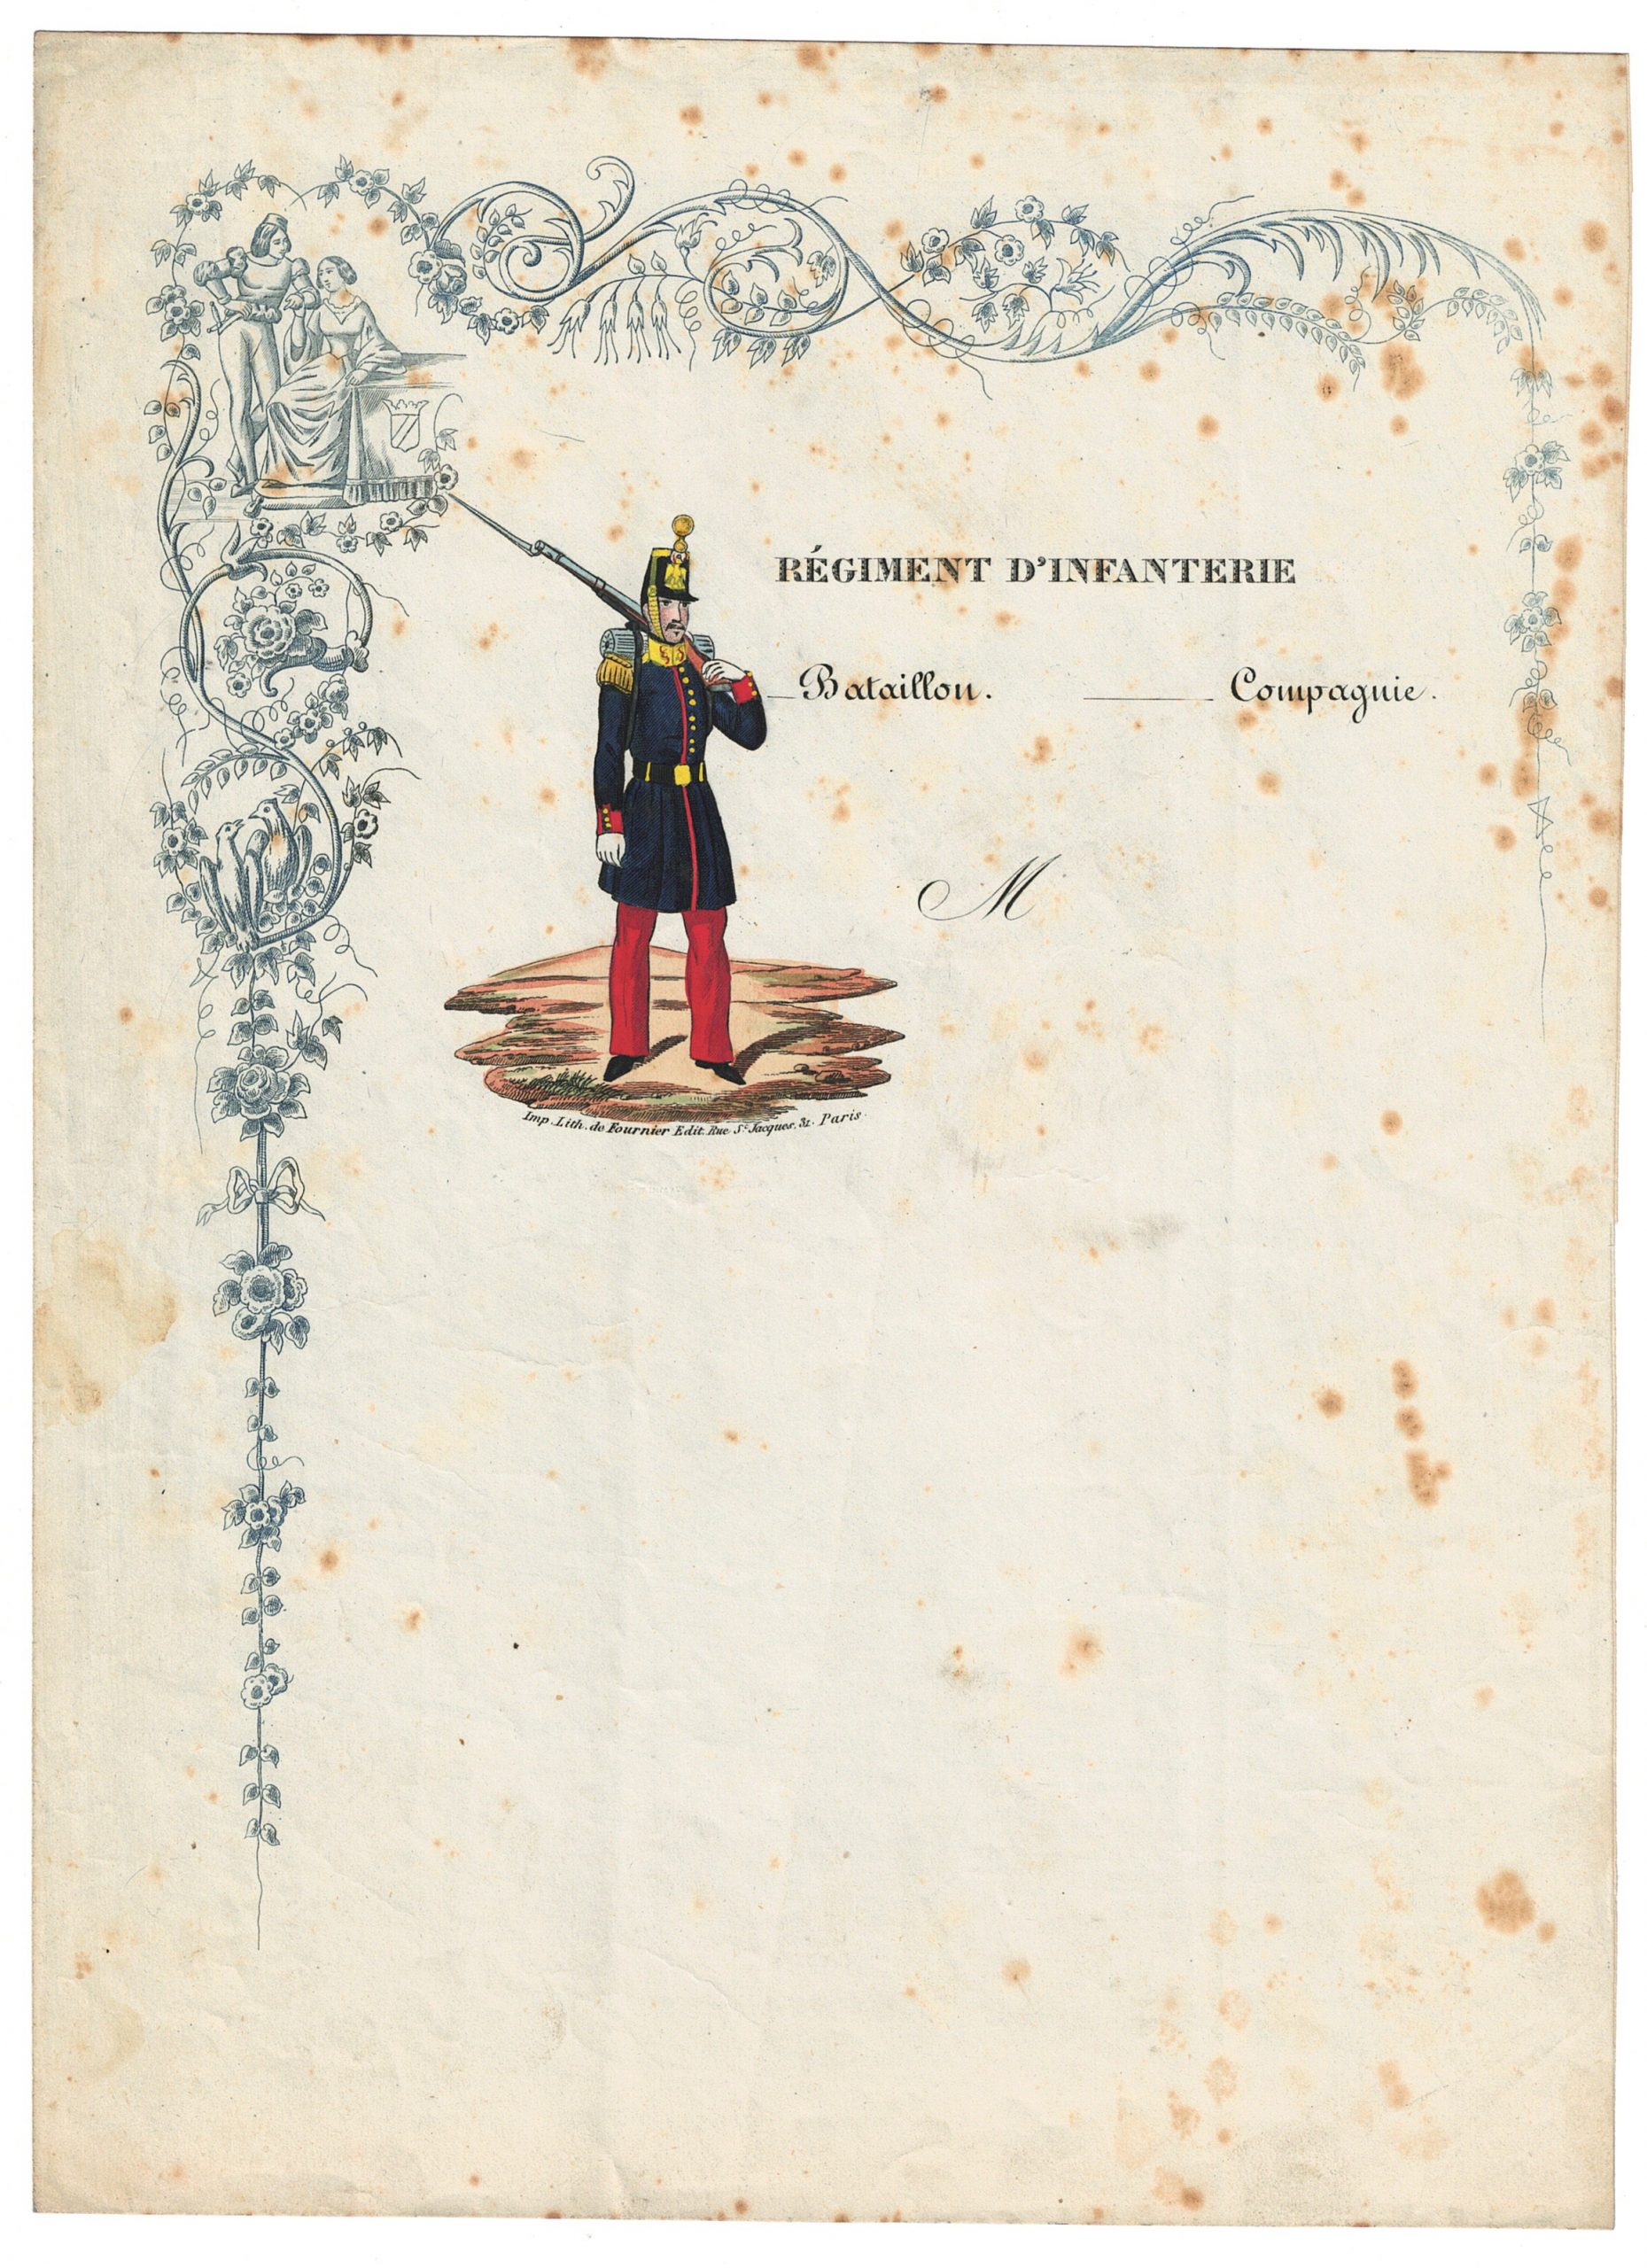 RÉGIMENT D'INFANTERIE
Bataillon. Compagnie.
M
Imp. Lith. de Fournier Edit. Rue St. Jacques. 31. Paris.